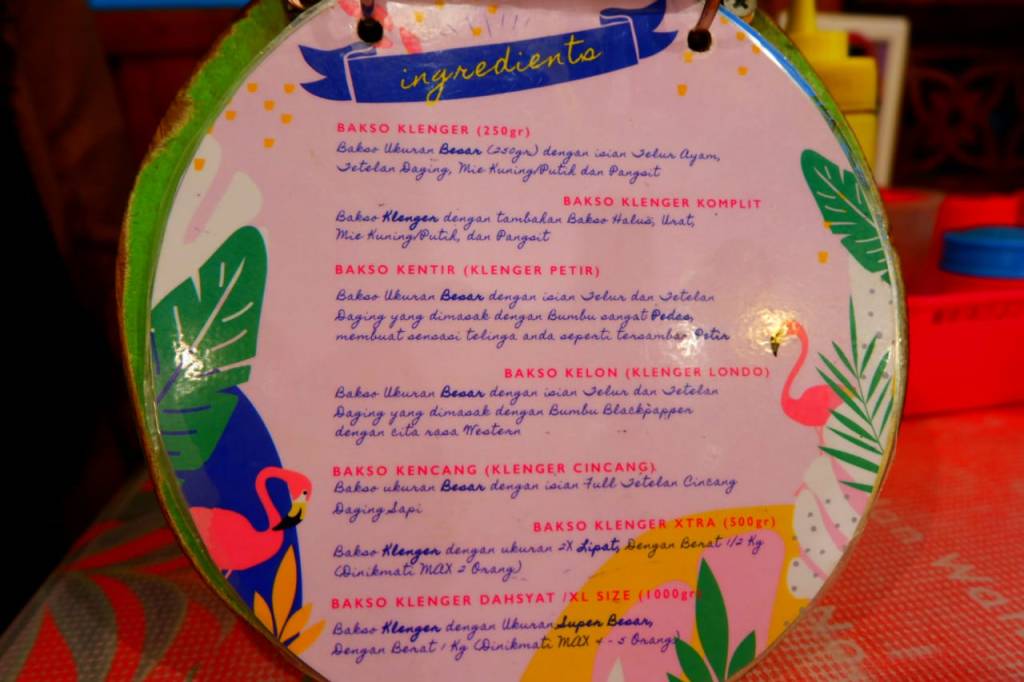 ingredients
BAKSO KLENGER (250gr)
Bakso Ukuran Besar (250gr) dengan isian Telur Ayam,
Tetelan Daging, Mie Kuning/Putih dan Pangsit
BAKSO KLENGER KOMPLIT
Bakso Klenger dengan tambahan Bakso Halus, Urat,
Mie Kuning/Putih, dan Pangsit
BAKSO KENTIR (KLENGER PETIR)
Bakso Ukuran Besar dengan isian Telur dan Tetelan
Daging yang dimasak dengan Bumbu sangat Pedas,
membuat sensasi telinga anda seperti tersambar Petir
BAKSO KELON (KLENGER LONDO)
Bakso Ukuran Besar dengan isian Telur dan Tetelan
Daging yang dimasak dengan Bumbu Blackpapper
dengan cita rasa Western
BAKSO KENCANG (KLENGER CINCANG)
Bakso ukuran Besar dengan isian Full Tetelan Cincang
Daging Sapi
BAKSO KLENGER XTRA (500gr)
Bakso Klenger dengan ukuran 2X Lipat, Dengan Berat 1/2 Kg
(Dinikmati MAX 2 Orang)
BAKSO KLENGER DAHSYAT /XL SIZE (1000gr)
Bakso Klenger dengan Ukuran Super Besar,
Dengan Berat 1 Kg (Dinikmati MAX 4 - 5 Orang)